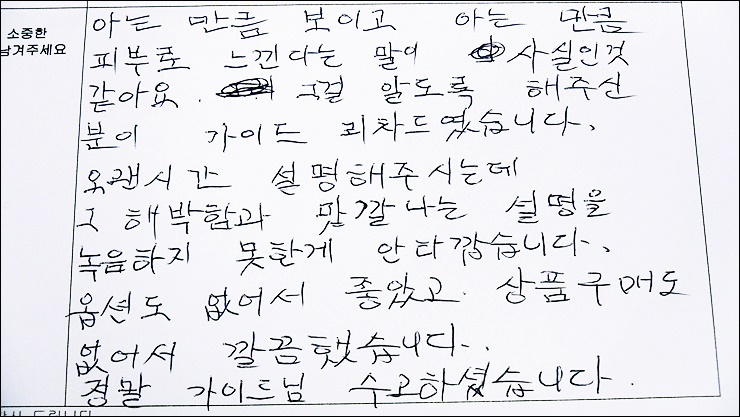 소중한
남겨주세요
아는 만큼 보이고 아는 만큼
피부로 느낀다는 말이 사실인것
같아요. 그걸 알도록 해주신
분이 가이드 리차드였습니다.
오랜시간 설명해주시는데
그 해박함과 맛깔나는 설명을
녹음하지 못한게 안타깝습니다.
옵션도 없어서 좋았고 상품구매도
없어서 깔끔했습니다..
정말 가이드님 수고하셨습니다.